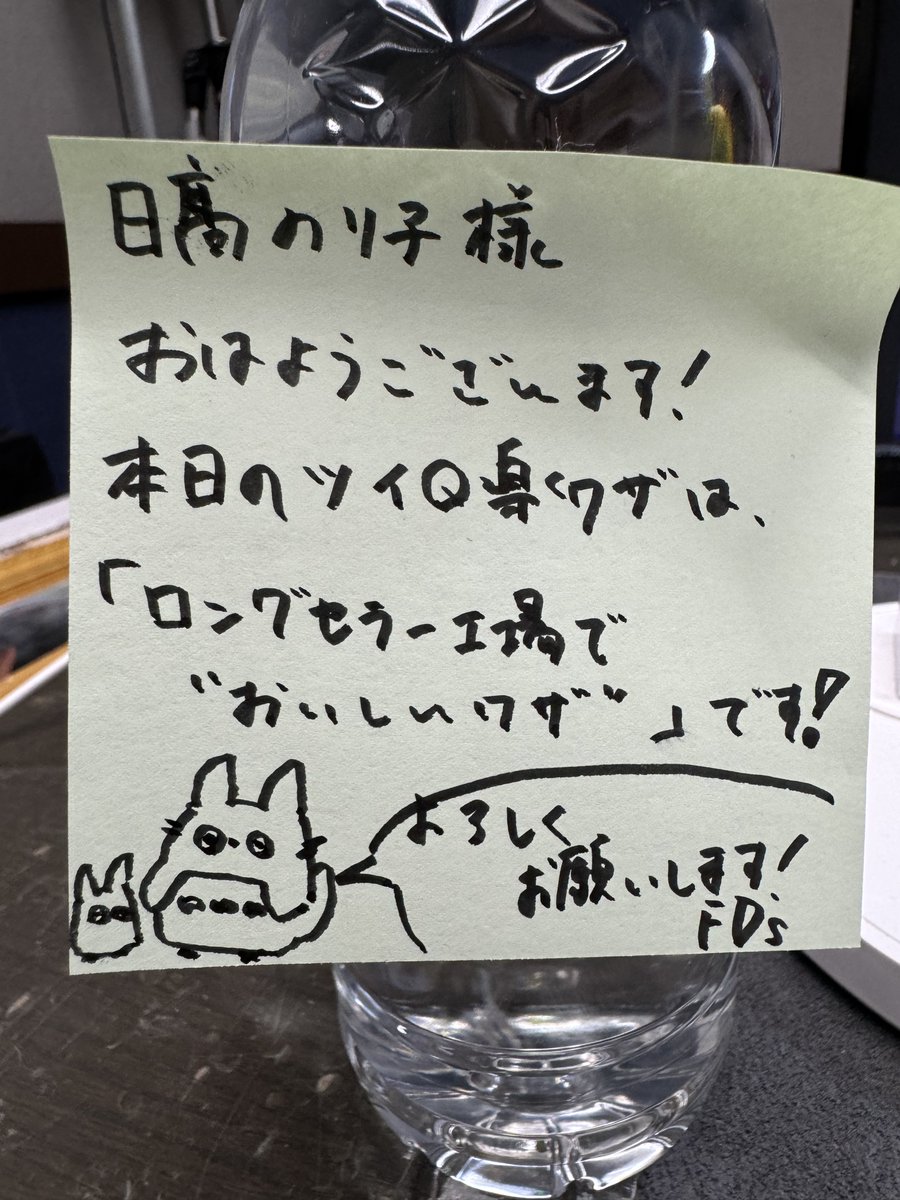 日髙のり子様
おはようございます!
本日のツイQ楽くワザは、
「ロングセラー工場で
“おいしいワザ”」です!
よろしく
お願いします!
FDs